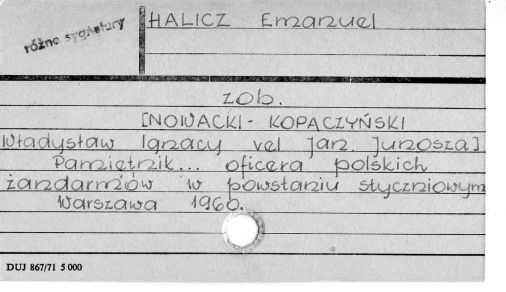 HALICZ Emanuel
różne sygnatury
zob.
[NOWACKI - KOPACZYŃSKI
Władysław Ignacy vel Jan Junosza]
Pamiętnik... oficera polskich
żandarmów w powstaniu styczniowym
Warszawa 1960.
DUJ 867/71 5 000